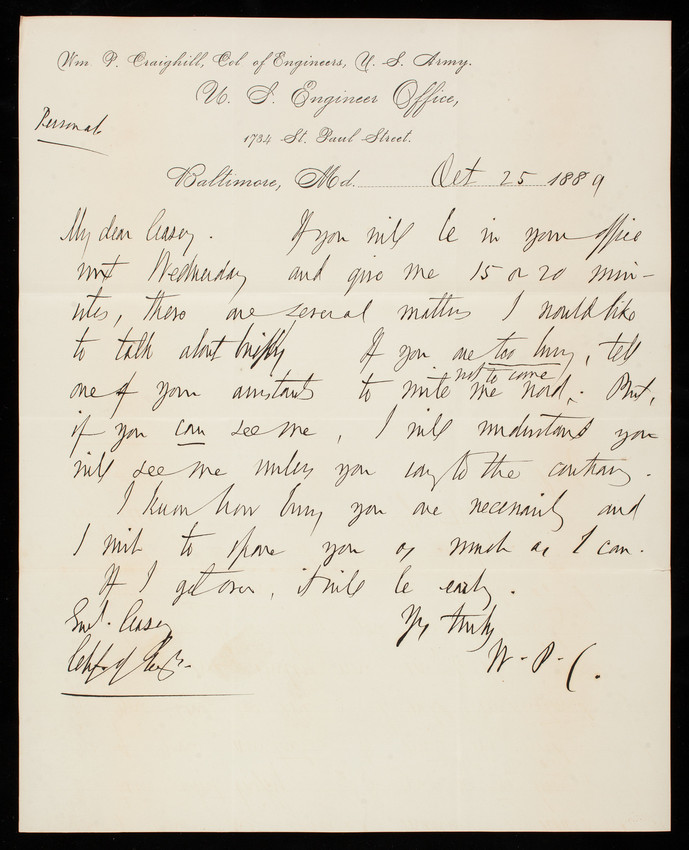 Wm P. Craighill, Col of Engineers, U. S. Army.
U. S. Engineer Office,
Personal
1734 St. Paul Street.
Baltimore, Md. Oct 25 1889
My dear Casey. If you will be in your office
next Wednesday and give me 15 or 20 min-
utes, there are several matters I would like
to talk about briefly. If you are too busy, tell
one of your assistants to write me word not to come. But,
if you can see me, I will understand you
will see me unless you say to the contrary.
I know how busy you are necessarily and
I wish to spare you as much as I can.
If I get over, it will be early.
Genl. Casey Yrs truly
Chf of Engrs. W. P. C.